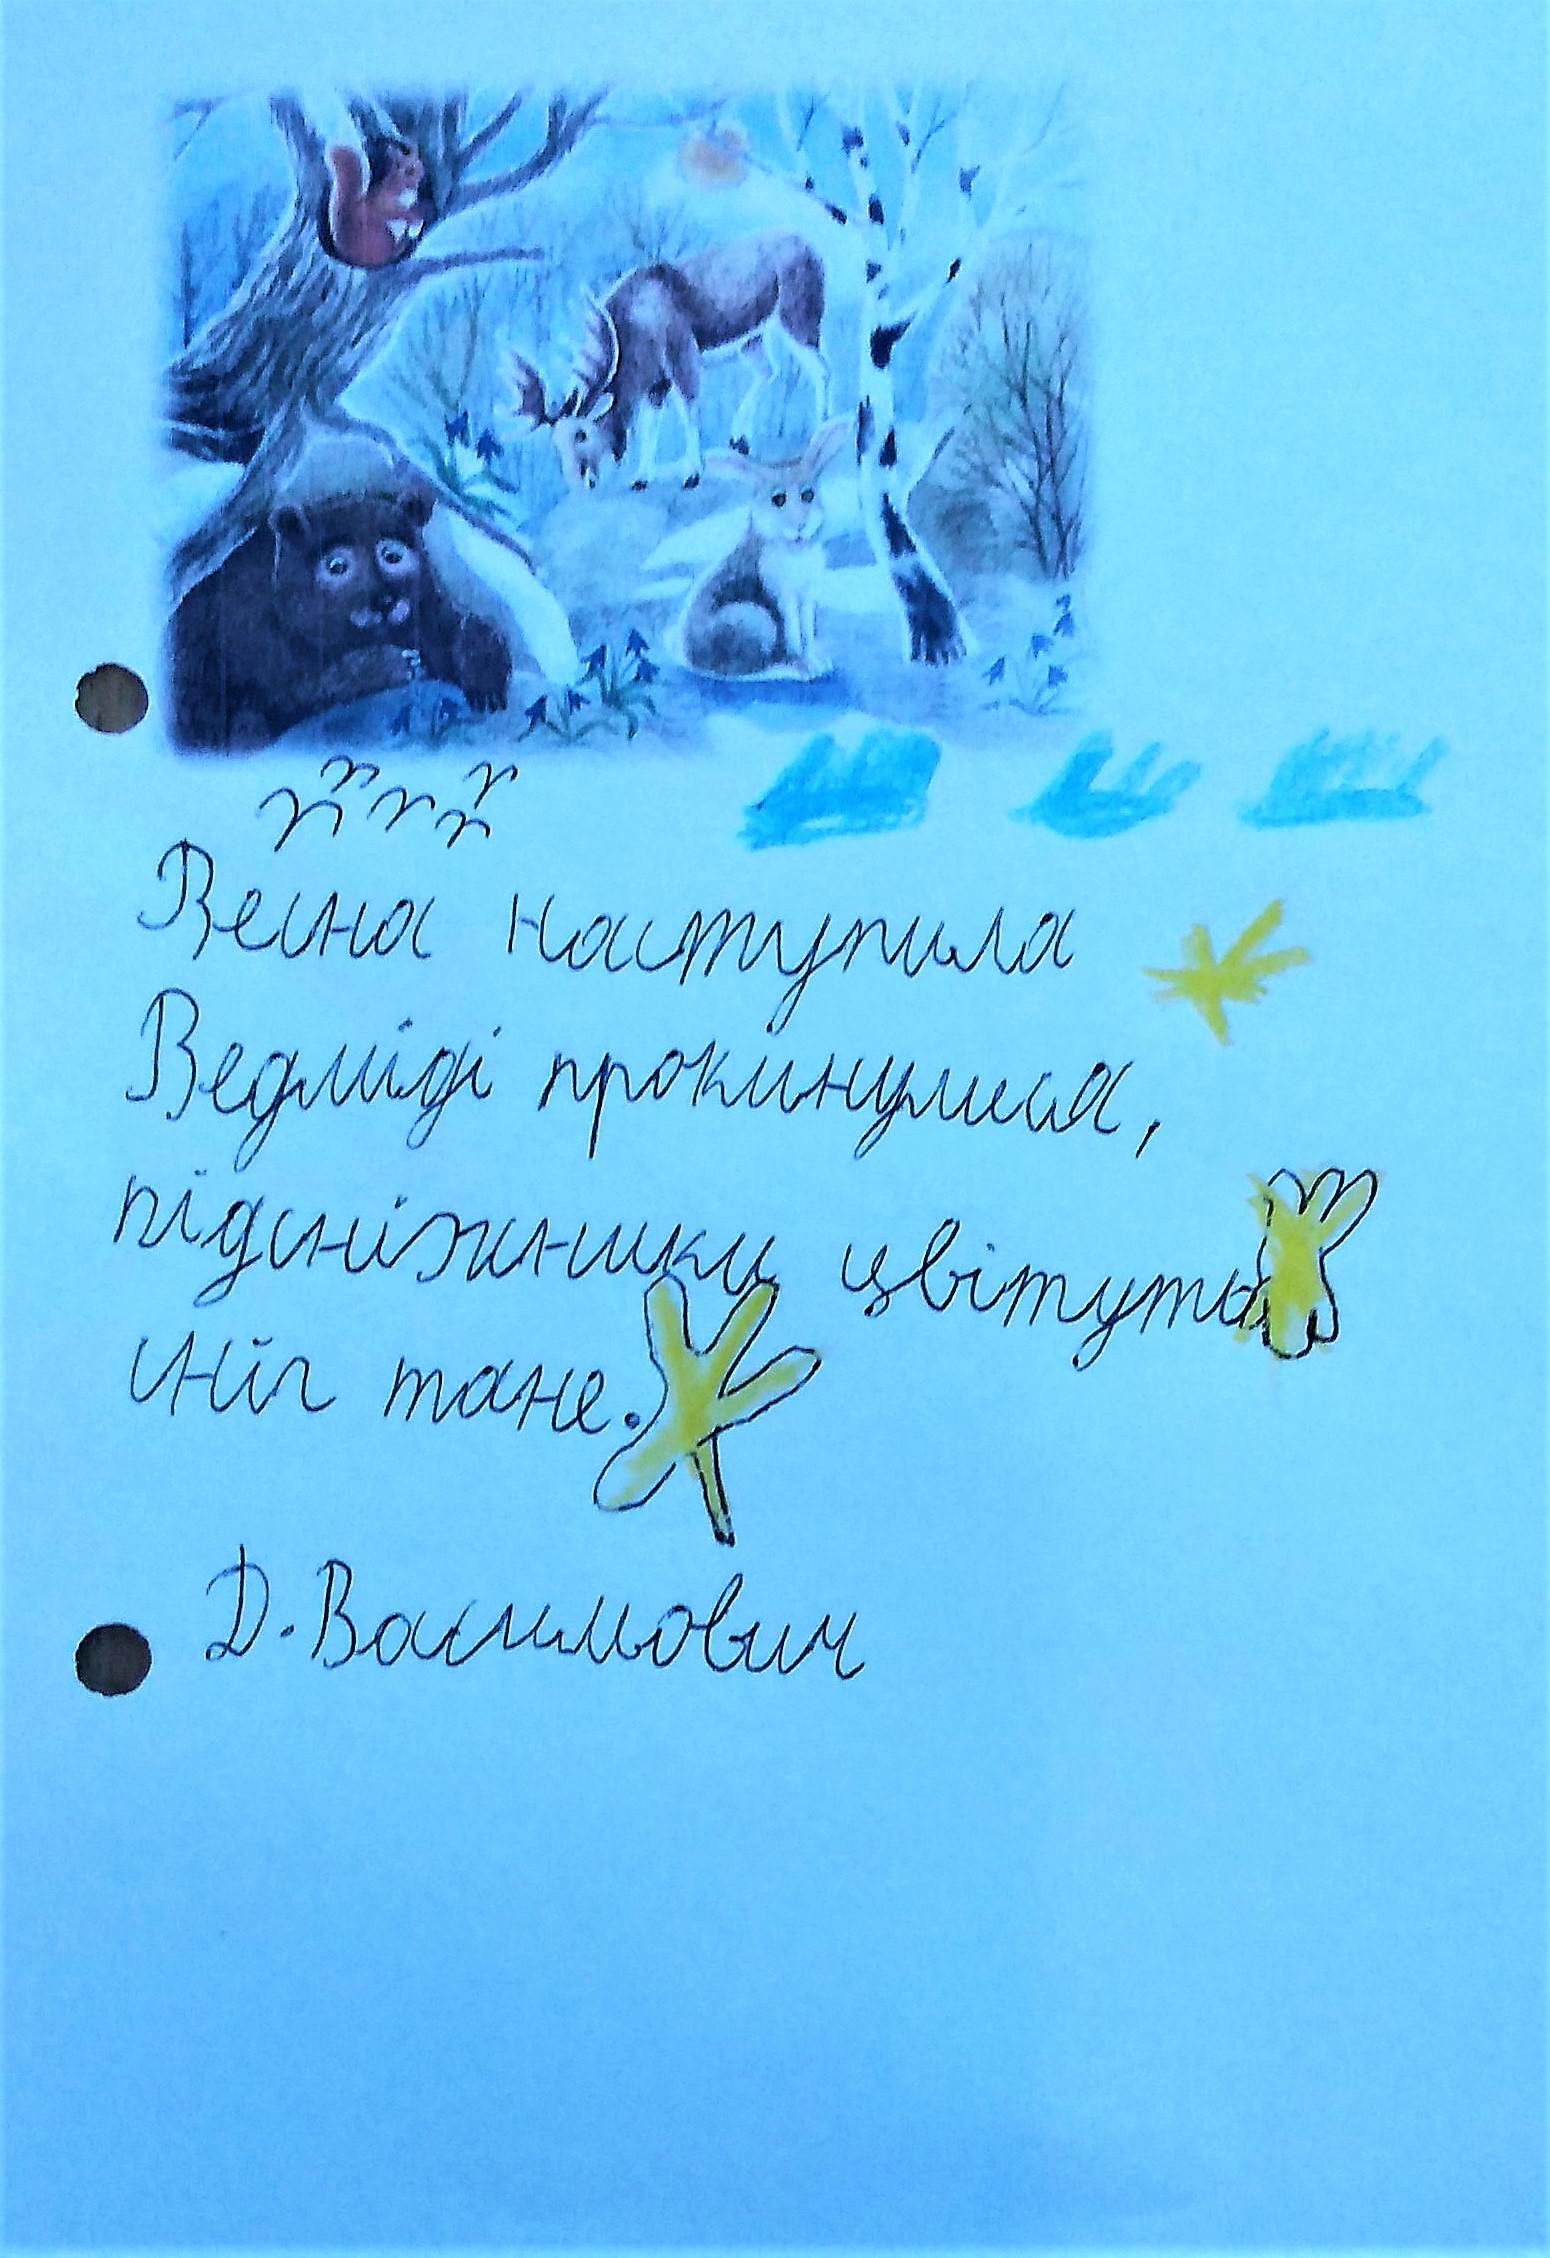 Весна наступила
Ведміді прокинулися,
підсніжники цвітуть
сніг тане.
Д. Василович